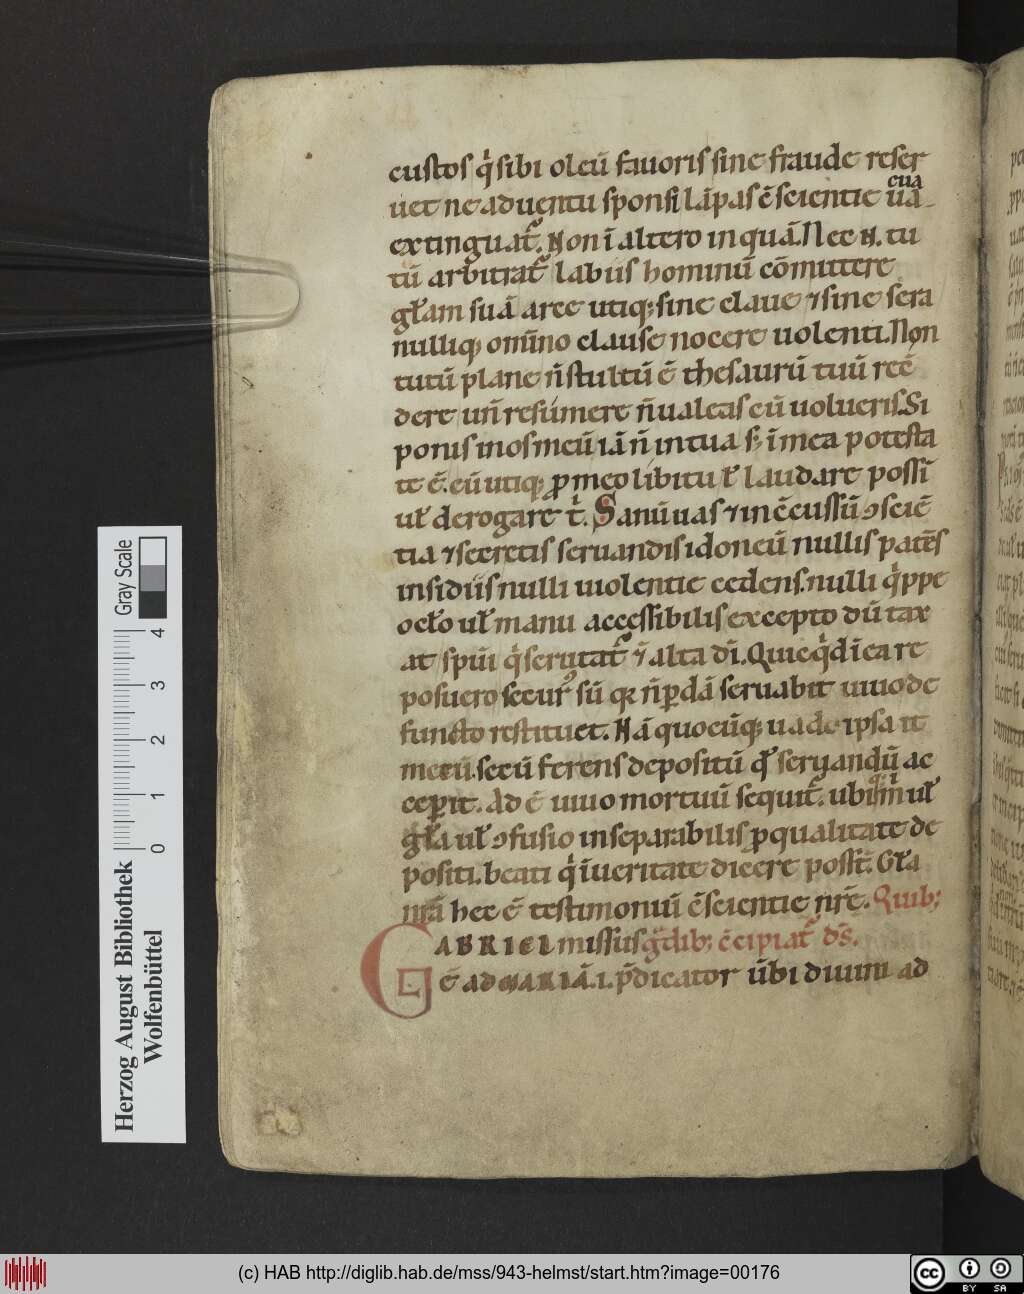 custos q̇ sibi oleū fauoris sine fraude reser
uet ne aduentu sponsi lāpas c̄scientie uacua
extinguat᷑. Non ī altero inquā. Nec N. tu
tū arbitrat᷑ labiis hominū cōmittere
gl̄am suā arce utiq; sine claue ⁊ sine sera
nulliq; om̄ino clause nocere uolenti. Non
tutū plane n̄ stultū ē thesaurū tuū recē
dere un̄ resumere n̄ ualeas cū uolueris. Si
porus in os meū iā n̄ in tua s; ī mea potesta
te ē. cū utiq; ꝓ meo libitu ł laudare possī
uł derogare t̄. Sanū uas ⁊ inc̄cussū ɔsciē
tia ⁊ secretis seruandis idoneū nullis patēs
insidiis nulli uiolentie cedens. nulli q̇ppe
ocło uł manu accessibilis excepto dū tax
at spiū q̇ scrutat᷑ ⁊ alta dī. Quicq̇d ī ea re
posuero secur᷑ sū qꝛ n̄ ꝑdā seruabit uiuo de
functo restituet. Nā quocūq; uado ipsa it
mecū. secū ferens depositū qd̄ seruandū ac
cepit. Adē uiuo mortuū sequit᷑. ubiq; m̄ uł
gła uł ɔfusio inseparabilis ꝓ qualitate de
positi. beati q̇ ī ueritate dicere posst᷑. Gła
nr̄a hec ē testimoniū c̄scientie nr̄e. Quib;
GABRIEL missus gd̄ib; c̄cipiat᷑ d̄s.
ē ad MARIĀ. i. p̄dicator ūbi diuini ad
Herzog August Bibliothek
Wolfenbüttel
0 1 2 3 4
Gray Scale
(c) HAB http://diglib.hab.de/mss/943-helmst/start.htm?image=00176
cc BY SA